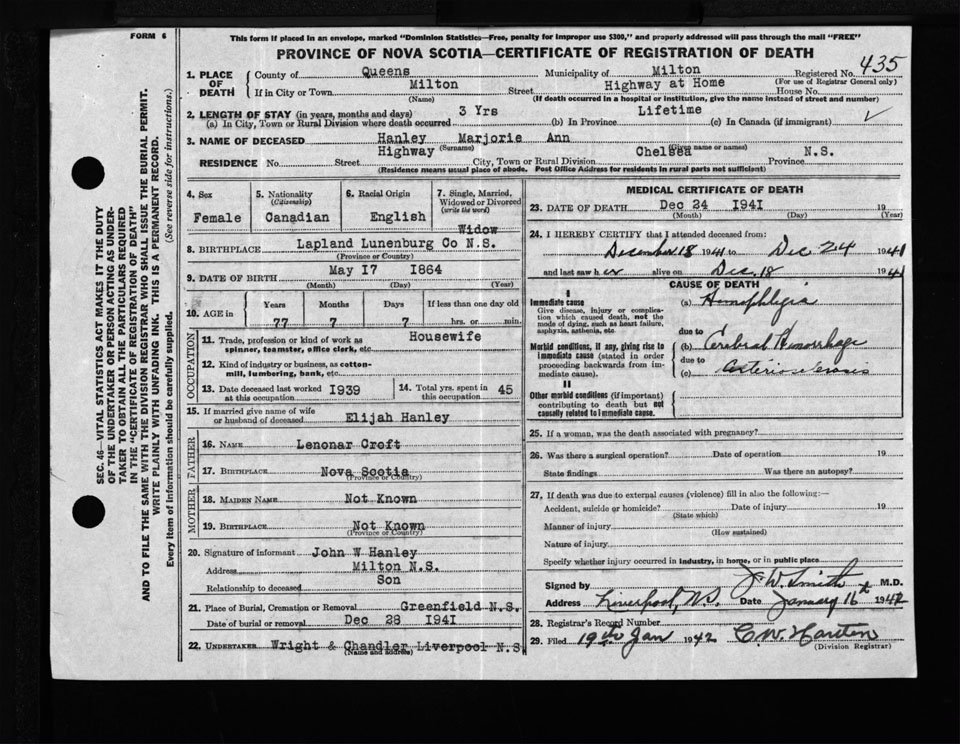 FORM 6
This form if placed in an envelope, marked "Dominion Statistics—Free, penalty for improper use $300," and properly addressed will pass through the mail "FREE"
PROVINCE OF NOVA SCOTIA—CERTIFICATE OF REGISTRATION OF DEATH
SEC. 46—VITAL STATISTICS ACT MAKES IT THE DUTY
OF THE UNDERTAKER OR PERSON ACTING AS UNDER-
TAKER TO OBTAIN ALL THE PARTICULARS REQUIRED
IN THE "CERTIFICATE OF REGISTRATION OF DEATH"
AND TO FILE THE SAME WITH THE DIVISION REGISTRAR WHO SHALL ISSUE THE BURIAL PERMIT.
WRITE PLAINLY WITH UNFADING INK. THIS IS A PERMANENT RECORD.
Every item of information should be carefully supplied. (See reverse side for instructions.)
1. PLACE OF DEATH
County of Queens Municipality of Milton Registered No. 435
(For use of Registrar General only)
If in City or Town Milton Street Highway at Home House No.
(Name) (If death occurred in a hospital or institution, give the name instead of street and number)
2. LENGTH OF STAY (in years, months and days)
(a) In City, Town or Rural Division where death occurred 3 Yrs (b) In Province Lifetime (c) In Canada (if immigrant)
3. NAME OF DECEASED Hanley Marjorie Ann
(Surname) (Given name or names)
RESIDENCE No. Street Highway City, Town or Rural Division Chelsea Province N.S.
(Residence means usual place of abode. Post Office Address for residents in rural parts not sufficient)
4. Sex
Female
5. Nationality
(Citizenship)
Canadian
6. Racial Origin
English
7. Single, Married,
Widowed or Divorced
(write the word)
Widow
8. BIRTHPLACE Lapland Lunenburg Co N.S.
(Province or Country)
9. DATE OF BIRTH May 17 1864
(Month) (Day) (Year)
10. AGE in
Years Months Days If less than one day old
77 7 7 hrs. or min.
OCCUPATION
11. Trade, profession or kind of work as
spinner, teamster, office clerk, etc. Housewife
12. Kind of industry or business, as cotton-
mill, lumbering, bank, etc.
13. Date deceased last worked
at this occupation 1939
14. Total yrs. spent in
this occupation 45
15. If married give name of wife
or husband of deceased Elijah Hanley
FATHER
16. NAME Lenonar Croft
17. BIRTHPLACE Nova Scotia
(Province or Country)
MOTHER
18. MAIDEN NAME Not Known
19. BIRTHPLACE Not Known
(Province or Country)
20. Signature of informant John W Hanley
Address Milton N.S.
Relationship to deceased Son
21. Place of Burial, Cremation or Removal Greenfield N.S.
Date of burial or removal Dec 28 1941
22. UNDERTAKER Wright & Chandler Liverpool N.S
(Name and address)
MEDICAL CERTIFICATE OF DEATH
23. DATE OF DEATH Dec 24 1941 19
(Month) (Day) (Year)
24. I HEREBY CERTIFY that I attended deceased from:
December 18 1941 to Dec 24 1941
and last saw h er alive on Dec. 18 1941
CAUSE OF DEATH
I
Immediate cause
Give disease, injury or complica-
tion which caused death, not the
mode of dying, such as heart failure,
asphyxia, asthenia, etc
(a) Hemophlegia
due to
Morbid conditions, if any, giving rise to
immediate cause (stated in order
proceeding backwards from im-
mediate cause).
(b) Cerebral Hemorrhage
due to
(c) arteriosclerosis
II
Other morbid conditions (if important)
contributing to death but not
causally related to immediate cause.
25. If a woman, was the death associated with pregnancy?
26. Was there a surgical operation? Date of operation 19
State findings Was there an autopsy?
27. If death was due to external causes (violence) fill in also the following:—
Accident, suicide or homicide? Date of injury 19
(State which)
Manner of injury
(How sustained)
Nature of injury
Specify whether injury occurred in industry, in home, or in public place
Signed by J. W. Smith M.D.
Address Liverpool, N.S. Date January 16th 1942
28. Registrar's Record Number
29. Filed 19th Jan 1942
(Division Registrar)